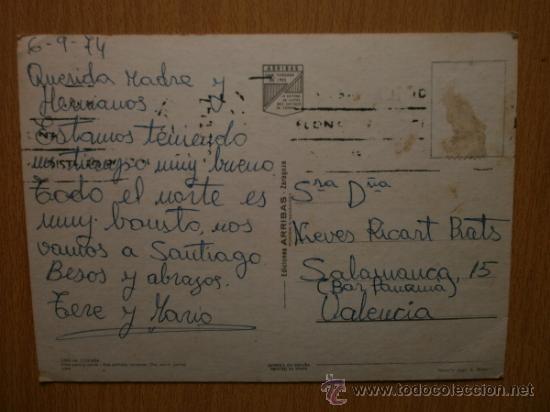 6-9-74
Querida Madre y
Hermanos
Estamos teniendo
un tiempo muy bueno
Todo el norte es
muy bonito, nos
vamos a Santiago
Besos y abrazos.
Tere y Mario
ARRIBAS
Ediciones ARRIBAS - Zaragoza
Sra Dña
Nieves Ricart Prats
Salamanca, 15
(Bar Panamá)
Valencia
todocoleccion.net